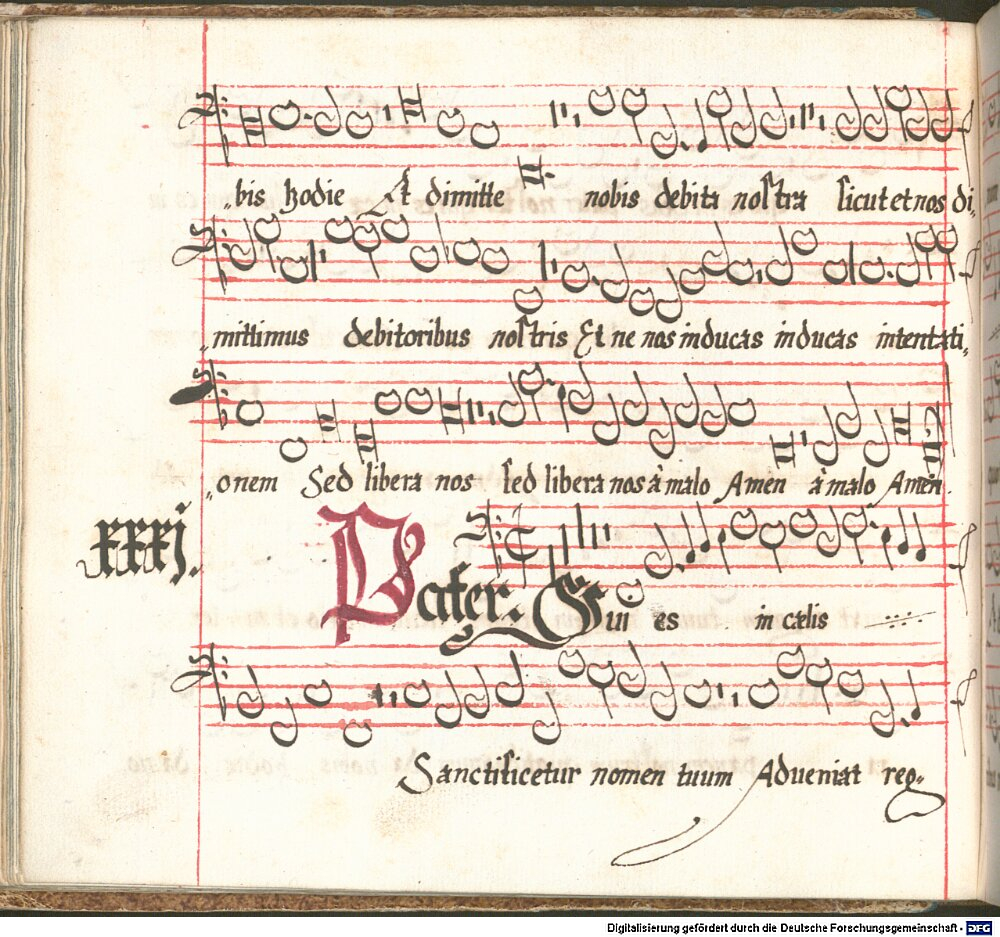 bis hodie Et dimitte nobis debita nostra sicut et nos di
mittimus debitoribus nostris Et ne nos inducas inducas in tentati
onem Sed libera nos sed libera nos à malo Amen à malo Amen
xxxj.
Pater. Qui es in cælis
Sanctificetur nomen tuum Adueniat reg
Digitalisierung gefördert durch die Deutsche Forschungsgemeinschaft - DFG